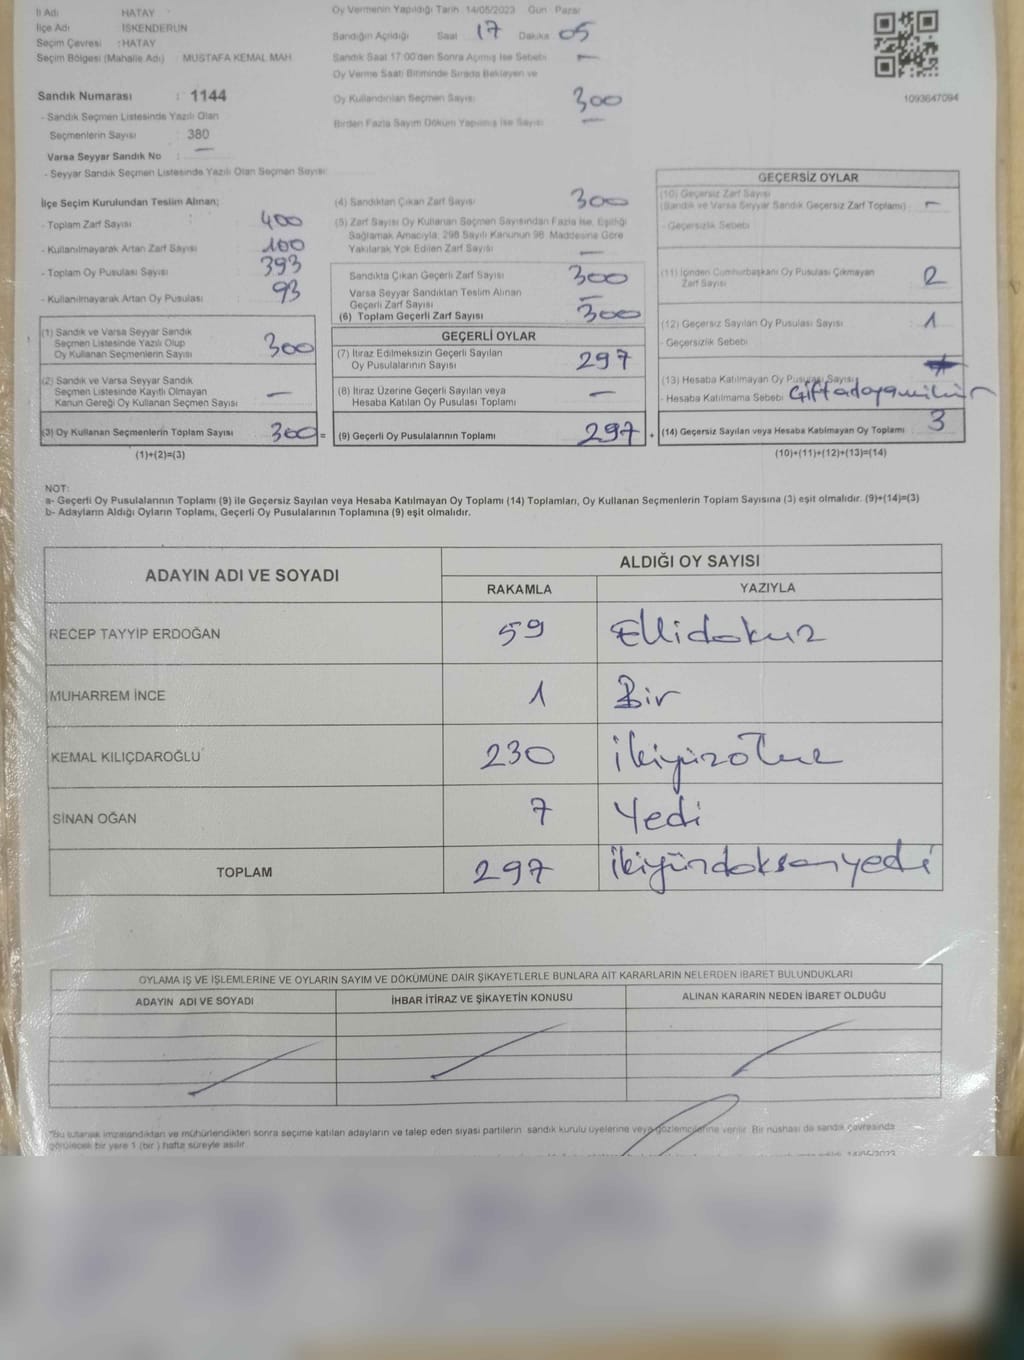 İl Adı HATAY
İlçe Adı İSKENDERUN
Seçim Çevresi : HATAY
Seçim Bölgesi (Mahalle Adı) MUSTAFA KEMAL MAH
Sandık Numarası : 1144
- Sandık Seçmen Listesinde Yazılı Olan
Seçmenlerin Sayısı : 380
Varsa Seyyar Sandık No : —
- Seyyar Sandık Seçmen Listesinde Yazılı Olan Seçmen Sayısı
Oy Vermenin Yapıldığı Tarih 14/05/2023 Gün Pazar
Sandığın Açıldığı Saat 17 Dakika 05
Sandık Saat 17:00'den Sonra Açılmış İse Sebebi —
Oy Verme Saati Bitiminde Sırada Bekleyen ve
Oy Kullandırılan Seçmen Sayısı 300
Birden Fazla Sayım Döküm Yapılmış İse Sayısı —
1093647094
İlçe Seçim Kurulundan Teslim Alınan;
- Toplam Zarf Sayısı : 400
- Kullanılmayarak Artan Zarf Sayısı 100
- Toplam Oy Pusulası Sayısı 393
- Kullanılmayarak Artan Oy Pusulası : 93
(1) Sandık ve Varsa Seyyar Sandık
Seçmen Listesinde Yazılı Olup
Oy Kullanan Seçmenlerin Sayısı 300
(2) Sandık ve Varsa Seyyar Sandık
Seçmen Listesinde Kayıtlı Olmayan
Kanun Gereği Oy Kullanan Seçmen Sayısı —
(3) Oy Kullanan Seçmenlerin Toplam Sayısı 300 =
(1)+(2)=(3)
(4) Sandıktan Çıkan Zarf Sayısı 300
(5) Zarf Sayısı Oy Kullanan Seçmen Sayısından Fazla İse, Eşitliği
Sağlamak Amacıyla, 298 Sayılı Kanunun 98. Maddesine Göre
Yakılarak Yok Edilen Zarf Sayısı —
Sandıkta Çıkan Geçerli Zarf Sayısı 300
Varsa Seyyar Sandıktan Teslim Alınan
Geçerli Zarf Sayısı —
(6) Toplam Geçerli Zarf Sayısı 300
GEÇERLİ OYLAR
(7) İtiraz Edilmeksizin Geçerli Sayılan
Oy Pusulalarının Sayısı 297
(8) İtiraz Üzerine Geçerli Sayılan veya
Hesaba Katılan Oy Pusulası Toplamı —
(9) Geçerli Oy Pusulalarının Toplamı 297 +
GEÇERSİZ OYLAR
(10) Geçersiz Zarf Sayısı
(Sandık ve Varsa Seyyar Sandık Geçersiz Zarf Toplamı) : —
- Geçersizlik Sebebi
(11) İçinden Cumhurbaşkanı Oy Pusulası Çıkmayan
Zarf Sayısı 2
(12) Geçersiz Sayılan Oy Pusulası Sayısı : 1
- Geçersizlik Sebebi
(13) Hesaba Katılmayan Oy Pusulası Sayısı
- Hesaba Katılmama Sebebi
(14) Geçersiz Sayılan veya Hesaba Katılmayan Oy Toplamı : 3
(10)+(11)+(12)+(13)=(14)
NOT:
a- Geçerli Oy Pusulalarının Toplamı (9) ile Geçersiz Sayılan veya Hesaba Katılmayan Oy Toplamı (14) Toplamları, Oy Kullanan Seçmenlerin Toplam Sayısına (3) eşit olmalıdır. (9)+(14)=(3)
b- Adayların Aldığı Oyların Toplamı, Geçerli Oy Pusulalarının Toplamına (9) eşit olmalıdır.
ADAYIN ADI VE SOYADI ALDIĞI OY SAYISI
RAKAMLA YAZIYLA
RECEP TAYYİP ERDOĞAN 59 Ellidokuz
MUHARREM İNCE 1 Bir
KEMAL KILIÇDAROĞLU 230 ikiyüzotuz
SİNAN OĞAN 7 Yedi
TOPLAM 297 ikiyüzdoksanyedi
OYLAMA İŞ VE İŞLEMLERİNE VE OYLARIN SAYIM VE DÖKÜMÜNE DAİR ŞİKAYETLERLE BUNLARA AİT KARARLARIN NELERDEN İBARET BULUNDUKLARI
ADAYIN ADI VE SOYADI İHBAR İTİRAZ VE ŞİKAYETİN KONUSU ALINAN KARARIN NEDEN İBARET OLDUĞU
*Bu tutanak imzalandıktan ve mühürlendikten sonra seçime katılan adayların ve talep eden siyasi partilerin sandık kurulu üyelerine veya gözlemcilerine verilir. Bir nüshası da sandık çevresinde
görülecek bir yere 1 (bir) hafta süreyle asılır.
14/05/2023